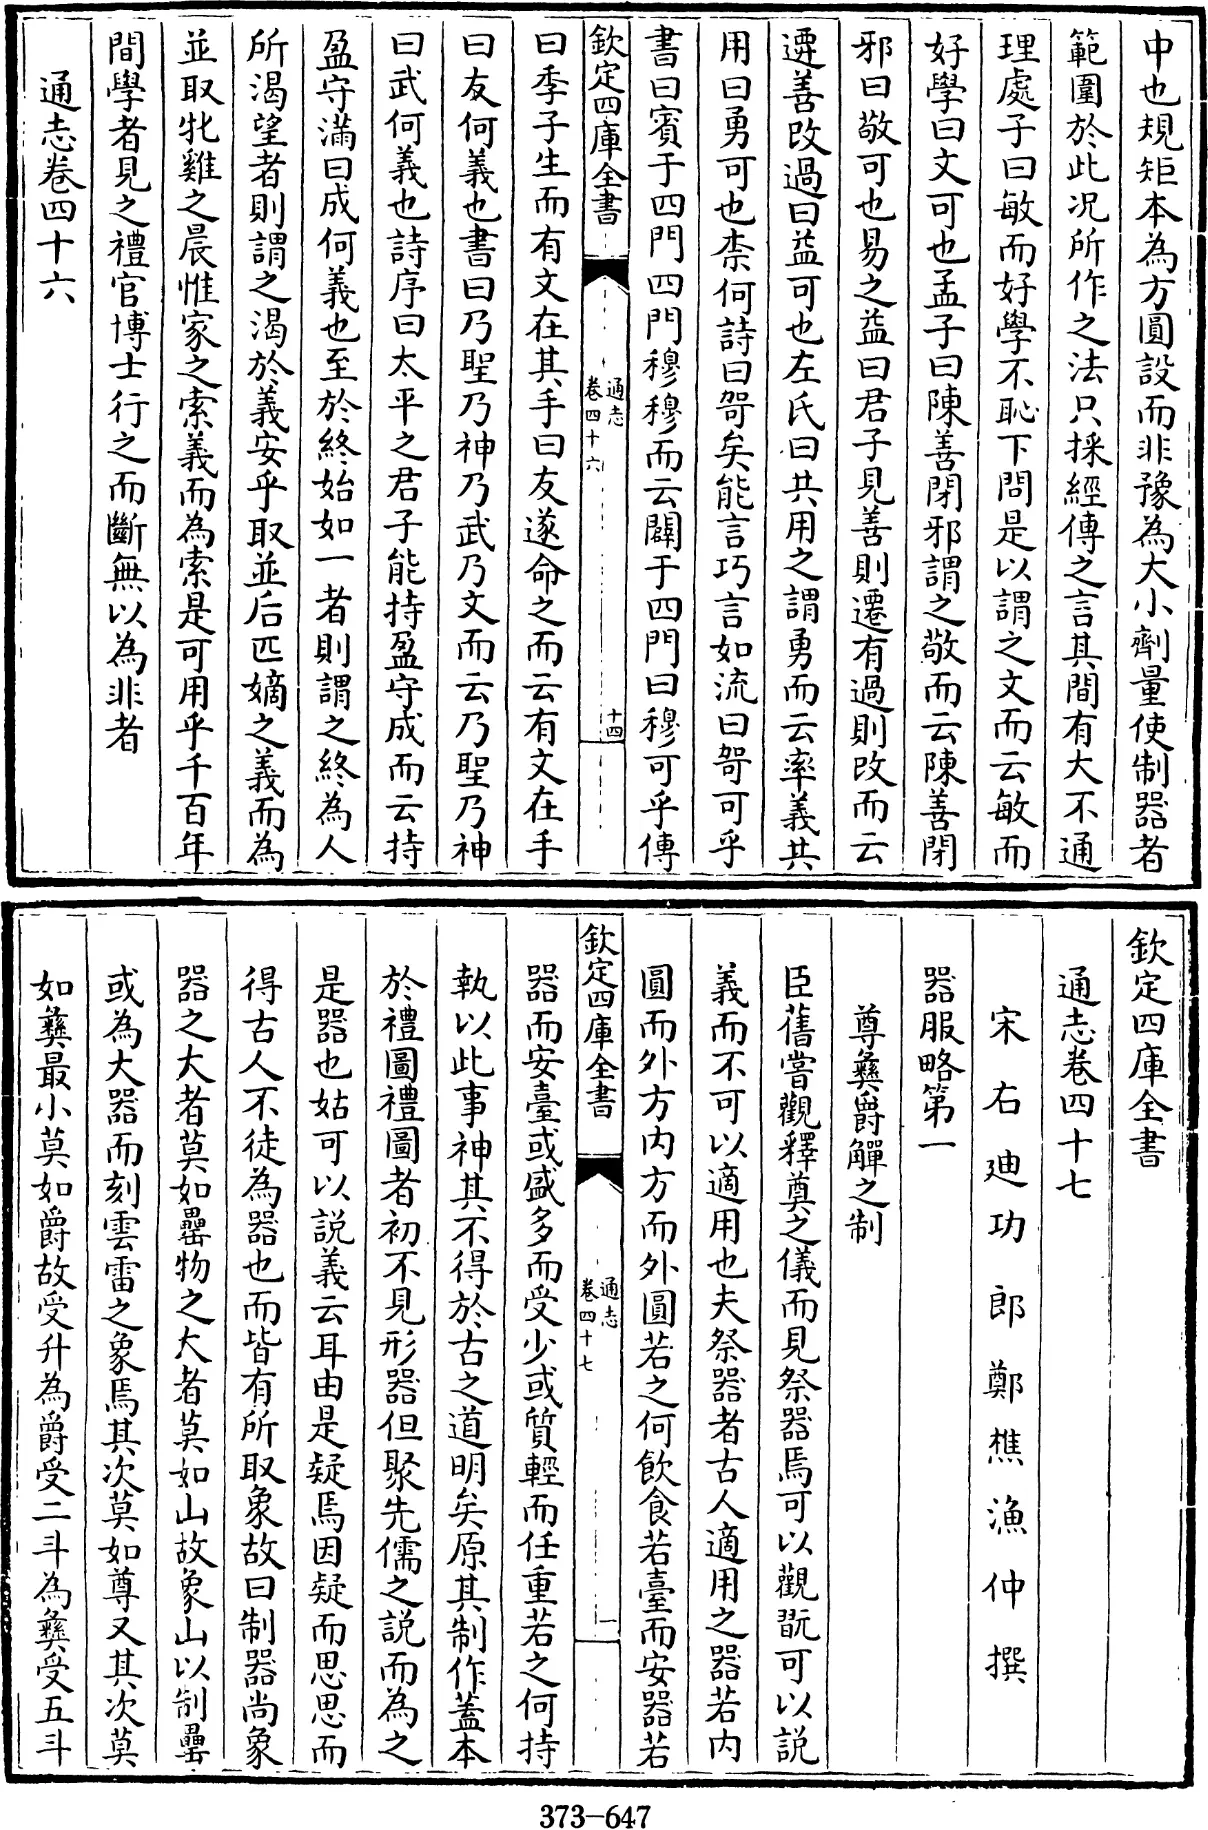 中也規矩本為方圓設而非豫為大小劑量使制器者
範圍於此况所作之法只採經傳之言其間有大不通
理處子曰敏而好學不恥下問是以謂之文而云敏而
好學曰文可也孟子曰陳善閉邪謂之敬而云陳善閉
邪曰敬可也易之益曰君子見善則遷有過則改而云
遷善改過曰益可也左氏曰共用之謂勇而云率義共
用曰勇可也柰何詩曰哿矣能言巧言如流曰哿可乎
書曰賓于四門四門穆穆而云闢于四門曰穆可乎傳
欽定四庫全書
通志
卷四十六
十四
曰季子生而有文在其手曰友遂命之而云有文在手
曰友何義也書曰乃聖乃神乃武乃文而云乃聖乃神
曰武何義也詩序曰太平之君子能持盈守成而云持
盈守滿曰成何義也至於終始如一者則謂之終為人
所渴望者則謂之渴於義安乎取並后匹嫡之義而為
並取牝雞之晨惟家之索義而為索是可用乎千百年
間學者見之禮官博士行之而斷無以為非者
通志卷四十六
欽定四庫全書
通志卷四十七
宋右迪功郎鄭樵漁仲撰
器服略第一
尊彝爵觶之制
臣舊嘗觀釋奠之儀而見祭器焉可以觀翫可以説
義而不可以適用也夫祭器者古人適用之器若内
圓而外方内方而外圓若之何飲食若臺而安器若
欽定四庫全書
通志
卷四十七
一
器而安臺或盛多而受少或質輕而任重若之何持
執以此事神其不得於古之道明矣原其制作蓋本
於禮圖禮圖者初不見形器但聚先儒之説而為之
是器也姑可以説義云耳由是疑焉因疑而思思而
得古人不徒為器也而皆有所取象故曰制器尚象
器之大者莫如罍物之大者莫如山故象山以制罍
或為大器而刻雲雷之象焉其次莫如尊又其次莫
如彝最小莫如爵故受升為爵受二斗為彝受五斗
373-647